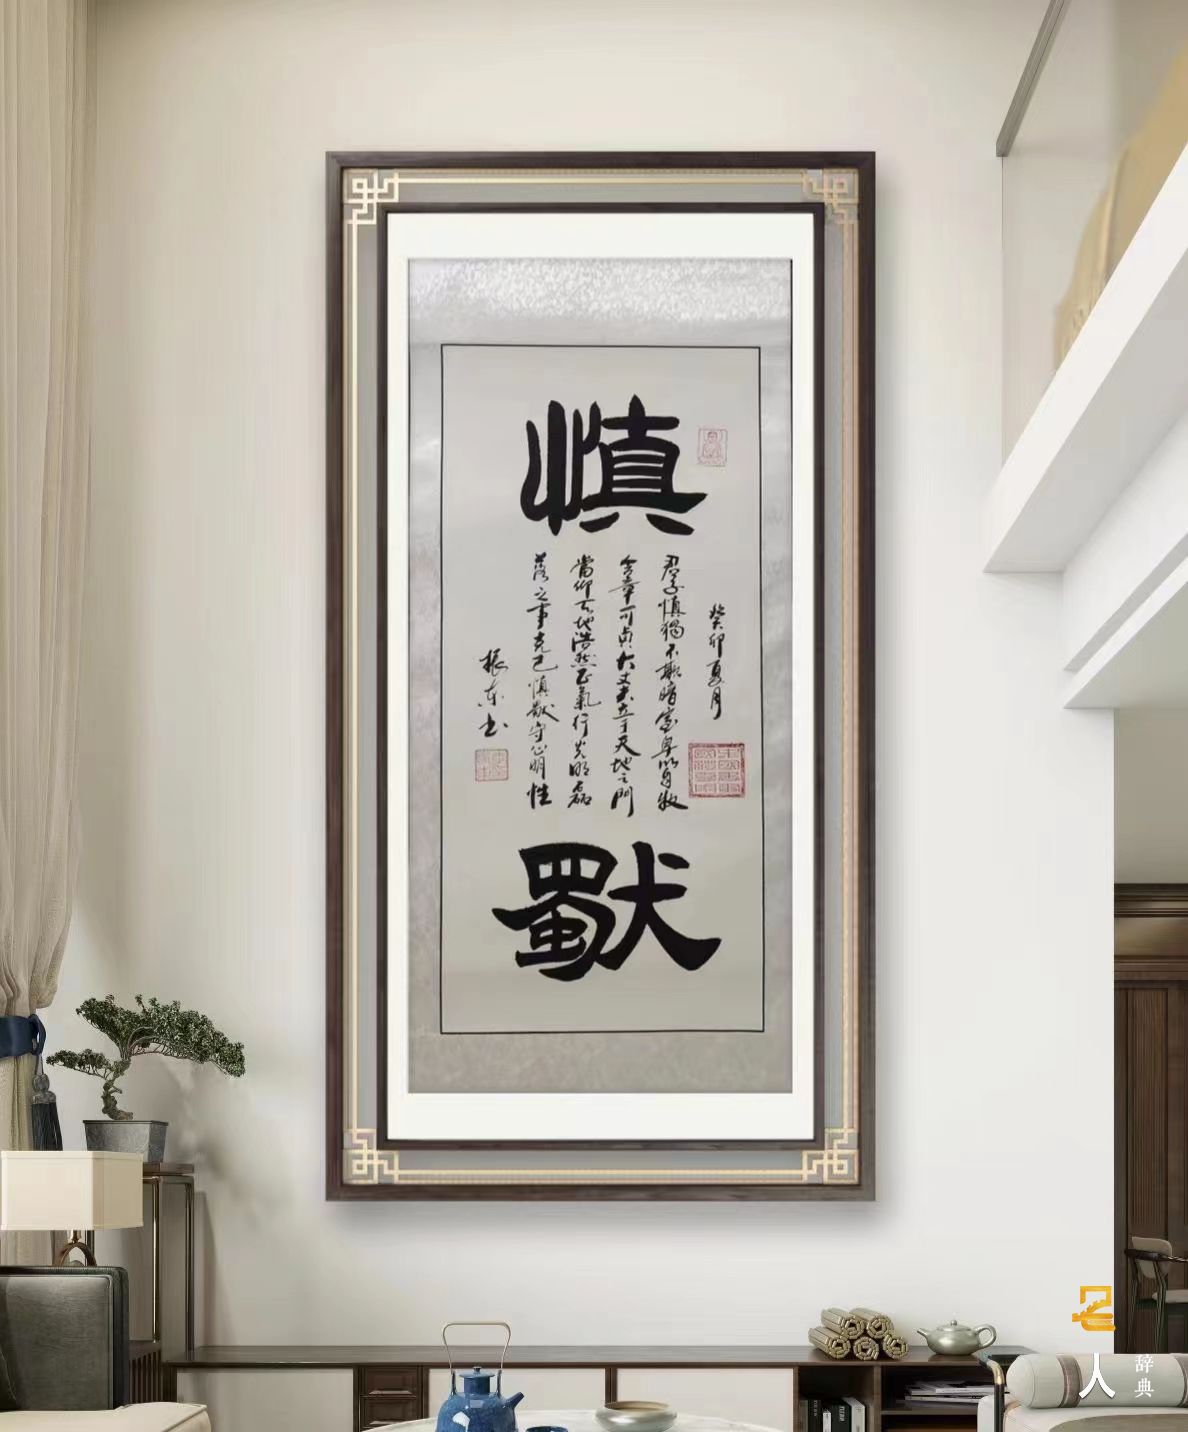 慎
獨
癸卯夏月
君子慎獨不欺暗室卑以自牧
含章可貞大丈夫立于天地之間
當仰天地浩然正氣行光明磊
落之事克己慎獨守心明性
振东书
名
人
辞典